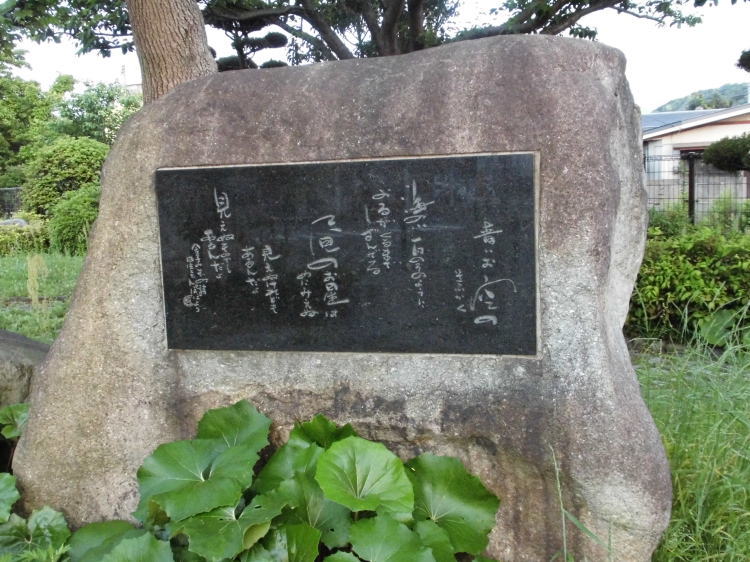 青いお空の
そこふかく
海の小石のそのように
よるがくるまで
しずんでる
昼のお星は
めにみえぬ
見えぬけれども
あるんだよ
見えぬものでも
あるんだよ
金子みすゞ詩